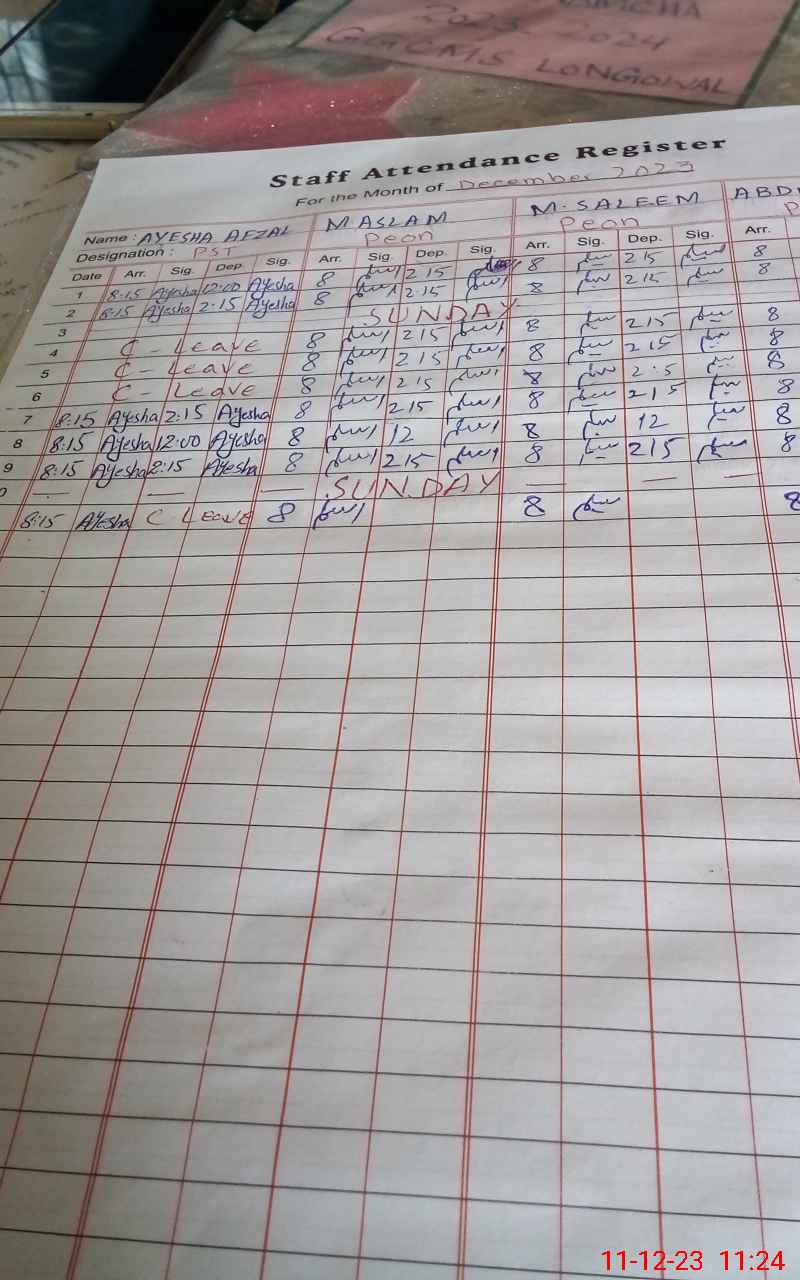 2023-2024
GGCMS LONGOWAL
Staff Attendance Register
For the Month of December 2023
Name : AYESHA AFZAL M. ASLAM M. SALEEM
Designation : PST Peon Peon
Date Arr. Sig. Dep. Sig. Arr. Sig. Dep. Sig. Arr. Sig. Dep. Sig. Arr.
1 8:15 Ayesha 12:00 Ayesha 8 اسلم 215 8 سلیم 215 سلیم 8
2 8:15 Ayesha 2:15 Ayesha 8 اسلم 215 اسلم 8 سلیم 215 سلیم 8
3 SUNDAY
4 C - Leave 8 اسلم 215 اسلم 8 سلیم 215 سلیم 8
5 C - Leave 8 اسلم 215 اسلم 8 سلیم 215 سلیم 8
6 C - Leave 8 اسلم 215 اسلم 8 سلیم 2:5 سلیم 8
7 8:15 Ayesha 2:15 Ayesha 8 اسلم 215 اسلم 8 سلیم 215 سلیم 8
8 8:15 Ayesha 12:00 Ayesha 8 اسلم 12 اسلم 8 سلیم 12 سلیم 8
9 8:15 Ayesha 2:15 Ayesha 8 اسلم 215 اسلم 8 سلیم 215 سلیم 8
0 — — — SUNDAY — — —
8:15 Ayesha C Leave 8 اسلم 8 سلیم 8
11-12-23 11:24